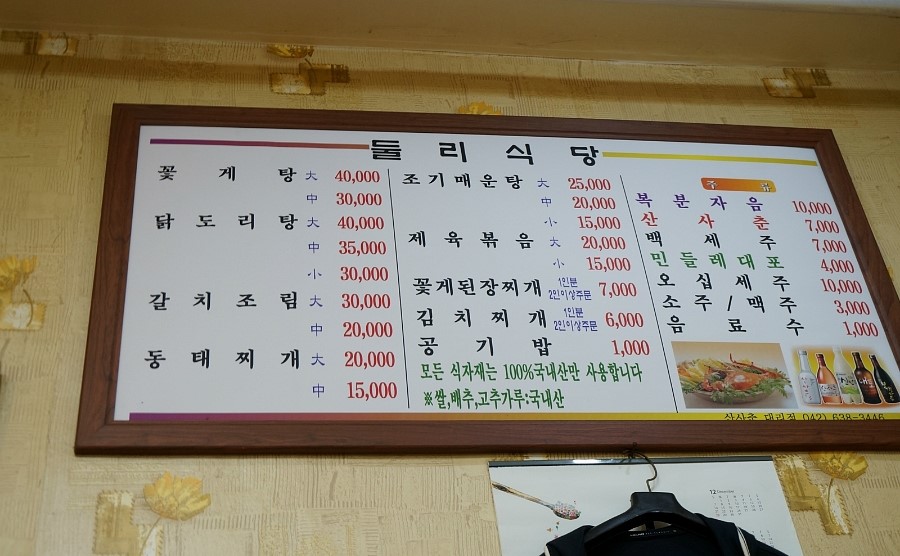 둘리식당
꽃게탕 大 40,000
中 30,000
닭도리탕 大 40,000
中 35,000
小 30,000
갈치조림 大 30,000
中 20,000
동태찌개 大 20,000
中 15,000
조기매운탕 大 25,000
中 20,000
小 15,000
제육볶음 大 20,000
小 15,000
꽃게된장찌개 1인분 7,000
2인이상주문
김치찌개 1인분 6,000
2인이상주문
공기밥 1,000
모든 식자재는 100%국내산만 사용합니다
※쌀,배추,고추가루:국내산
주류
복분자음 10,000
산사춘 7,000
백세주 7,000
민들레대포 4,000
오십세주 10,000
소주/맥주 3,000
음료수 1,000
산사춘 대리점 042) 638-3446
12